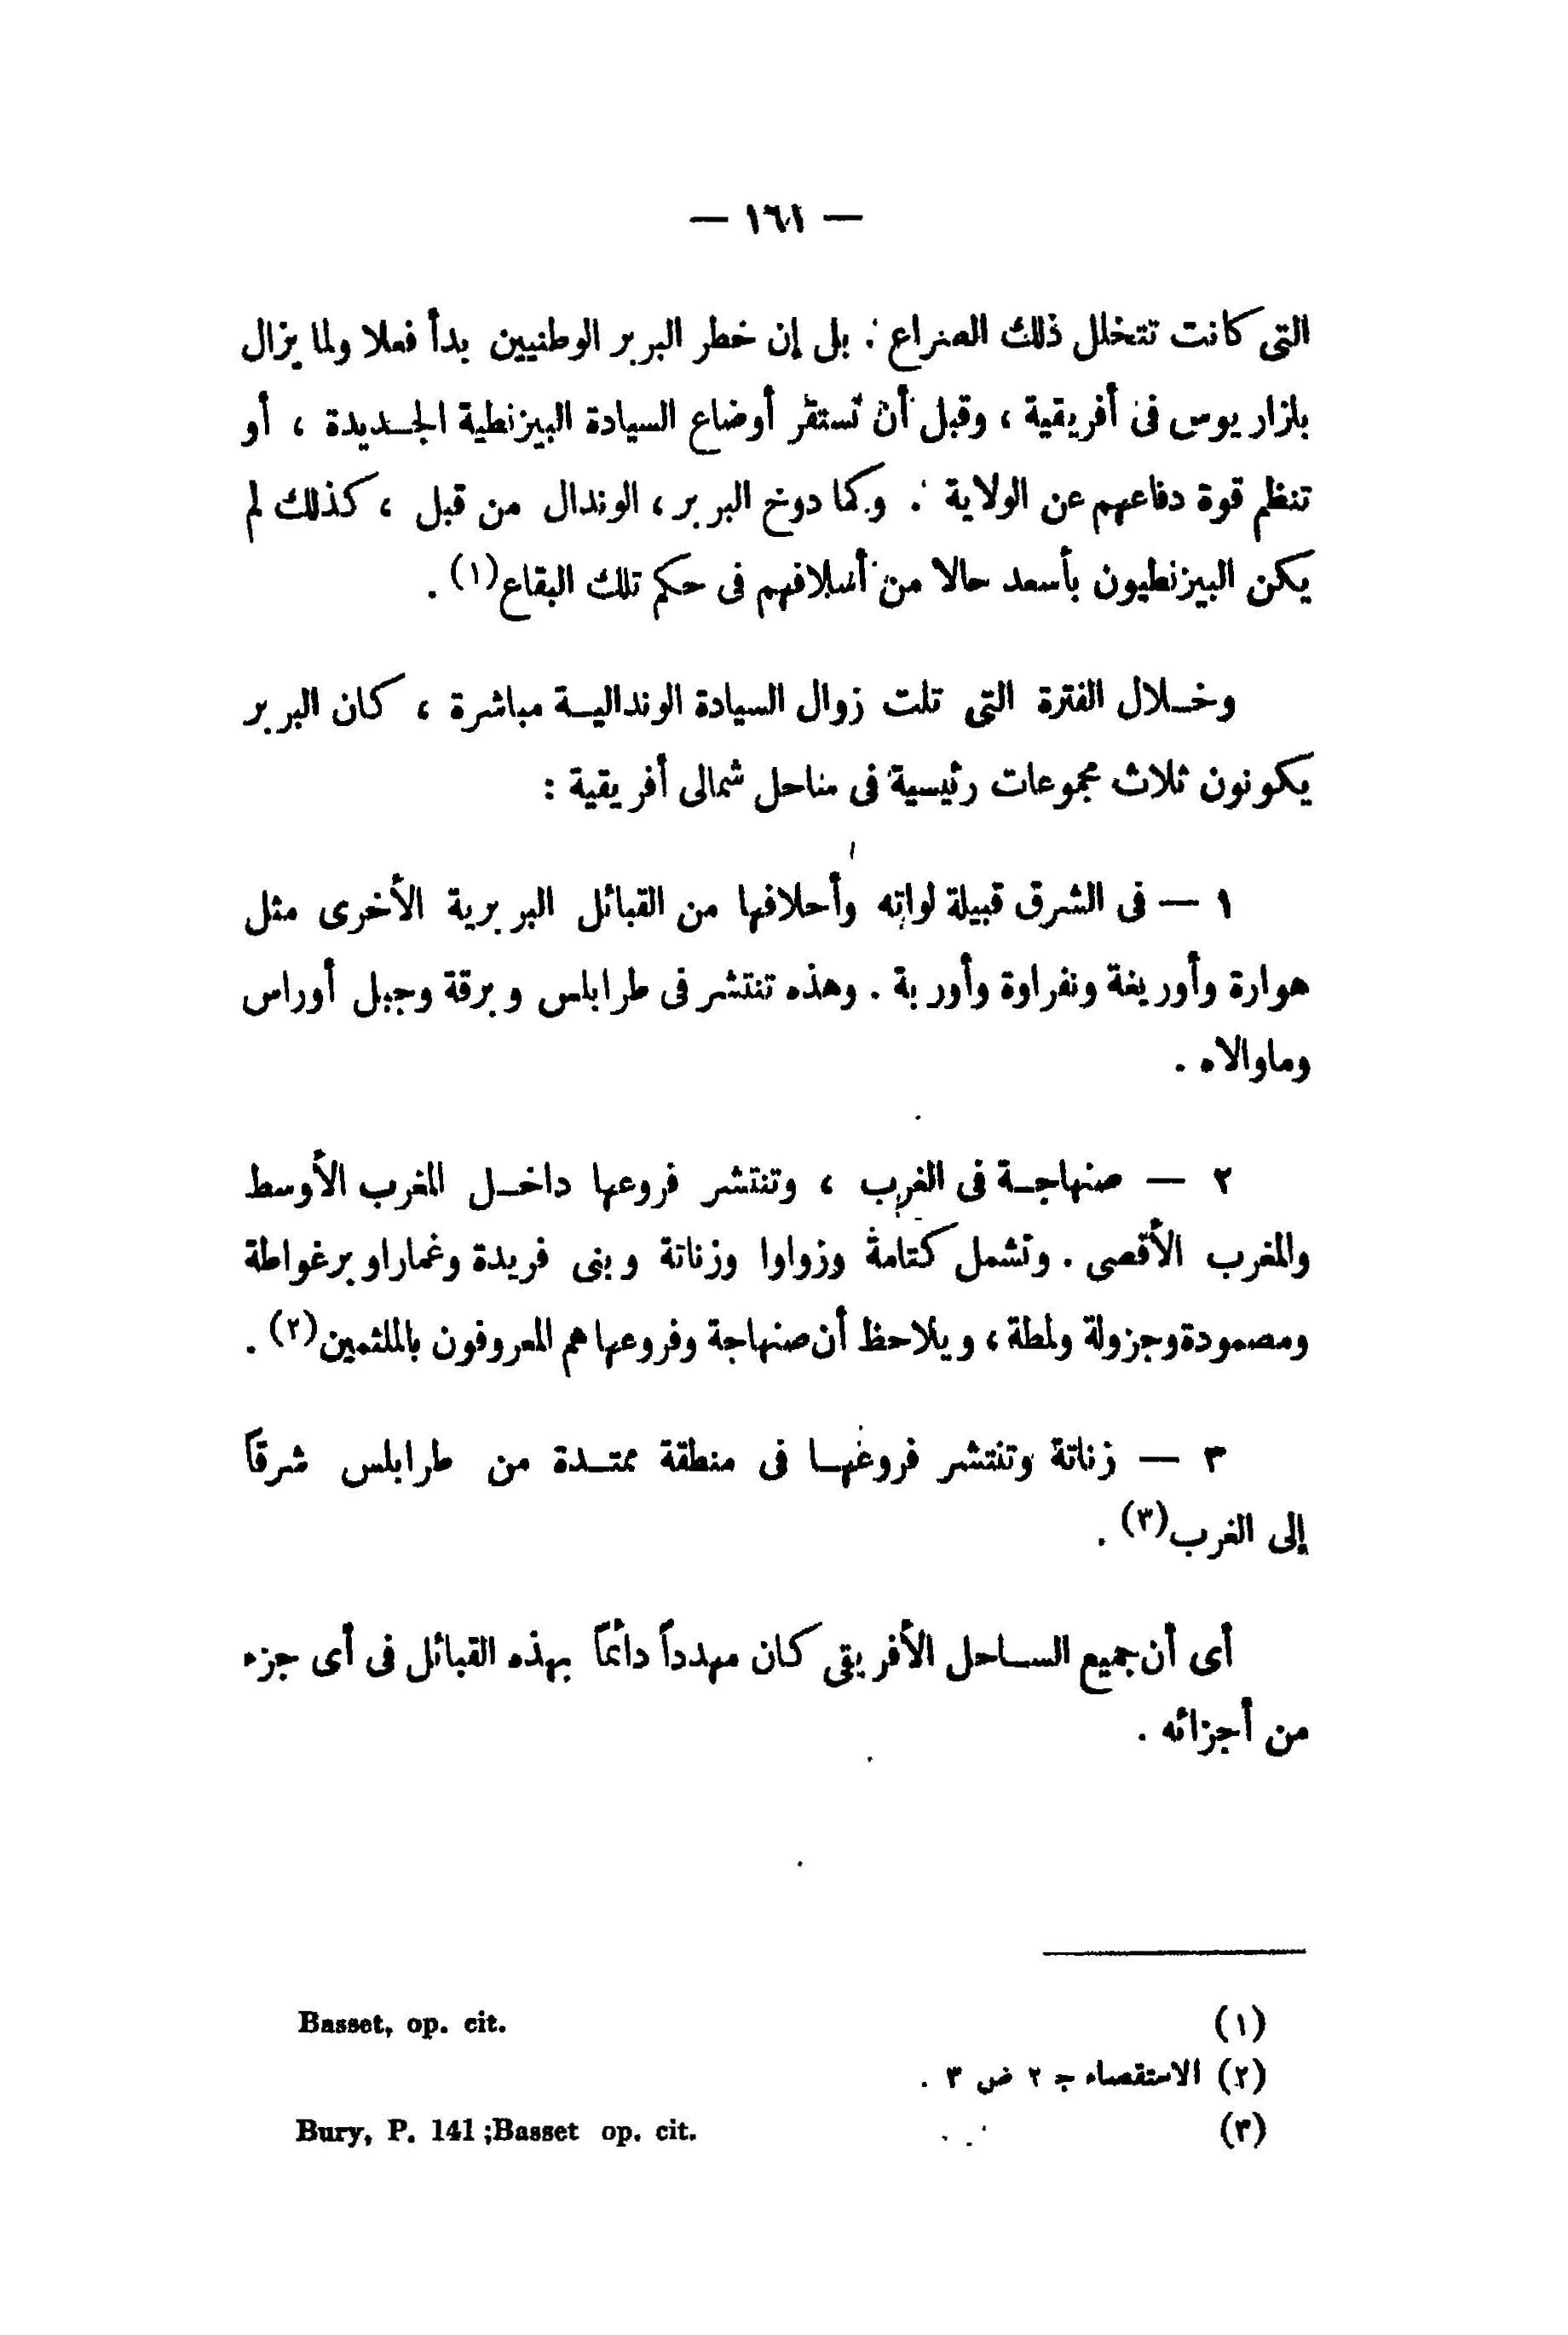 — ١٦١ —
التى كانت تتخلل ذلك الصراع . بل إن خطر البربر الوطنيين بدأ فعلا ولما يزال
بلزاريوس فى أفريقية ، وقبل أن تستقر أوضاع السيادة البيزنطية الجـديدة ، أو
تنظم قوة دفاعهم عن الولاية . وكما دوخ البربر ، الوندال من قبل ، كذلك لم
يكن البيزنطيون بأسعد حالا من أسلافهم فى حكم تلك البقاع(١) .
وخـلال الفترة التى تلت زوال السيادة الونداليـة مباشرة ، كان البربر
يكونون ثلاث مجموعات رئيسية فى مناحل شمالى أفريقية :
١ — فى الشرق قبيلة لواته وأحلافها من القبائل البربرية الأخرى مثل
هوارة وأوريغة ونفراوة وأوربة . وهذه تنتشر فى طرابلس وبرقة وجبل أوراس
وماوالاه .
٢ — صنهاجـة فى الغرب ، وتنتشر فروعها داخـل المغرب الأوسط
والمغرب الأقصى . وتشمل كتامة وزواوا وزناتة وبنى فريدة وغماراو برغواطة
ومصمودة وجزولة ولمطة ، ويلاحظ أن صنهاجة وفروعها هم المعروفون بالملثمين(٢) .
٣ — زناتة وتنتشر فروعهـا فى منطقة ممتـدة من طرابلس شرقاً
إلى الغرب(٣) .
أى أن جميع السـاحل الأفريقى كان مهدداً دائماً بهذه القبائل فى أى جزء
من أجزائه .
(١) Basset, op. cit.
(٢) الاستقصاء جـ ٢ ص ٣ .
(٣) Bury, P. 141 ;Basset op. cit.